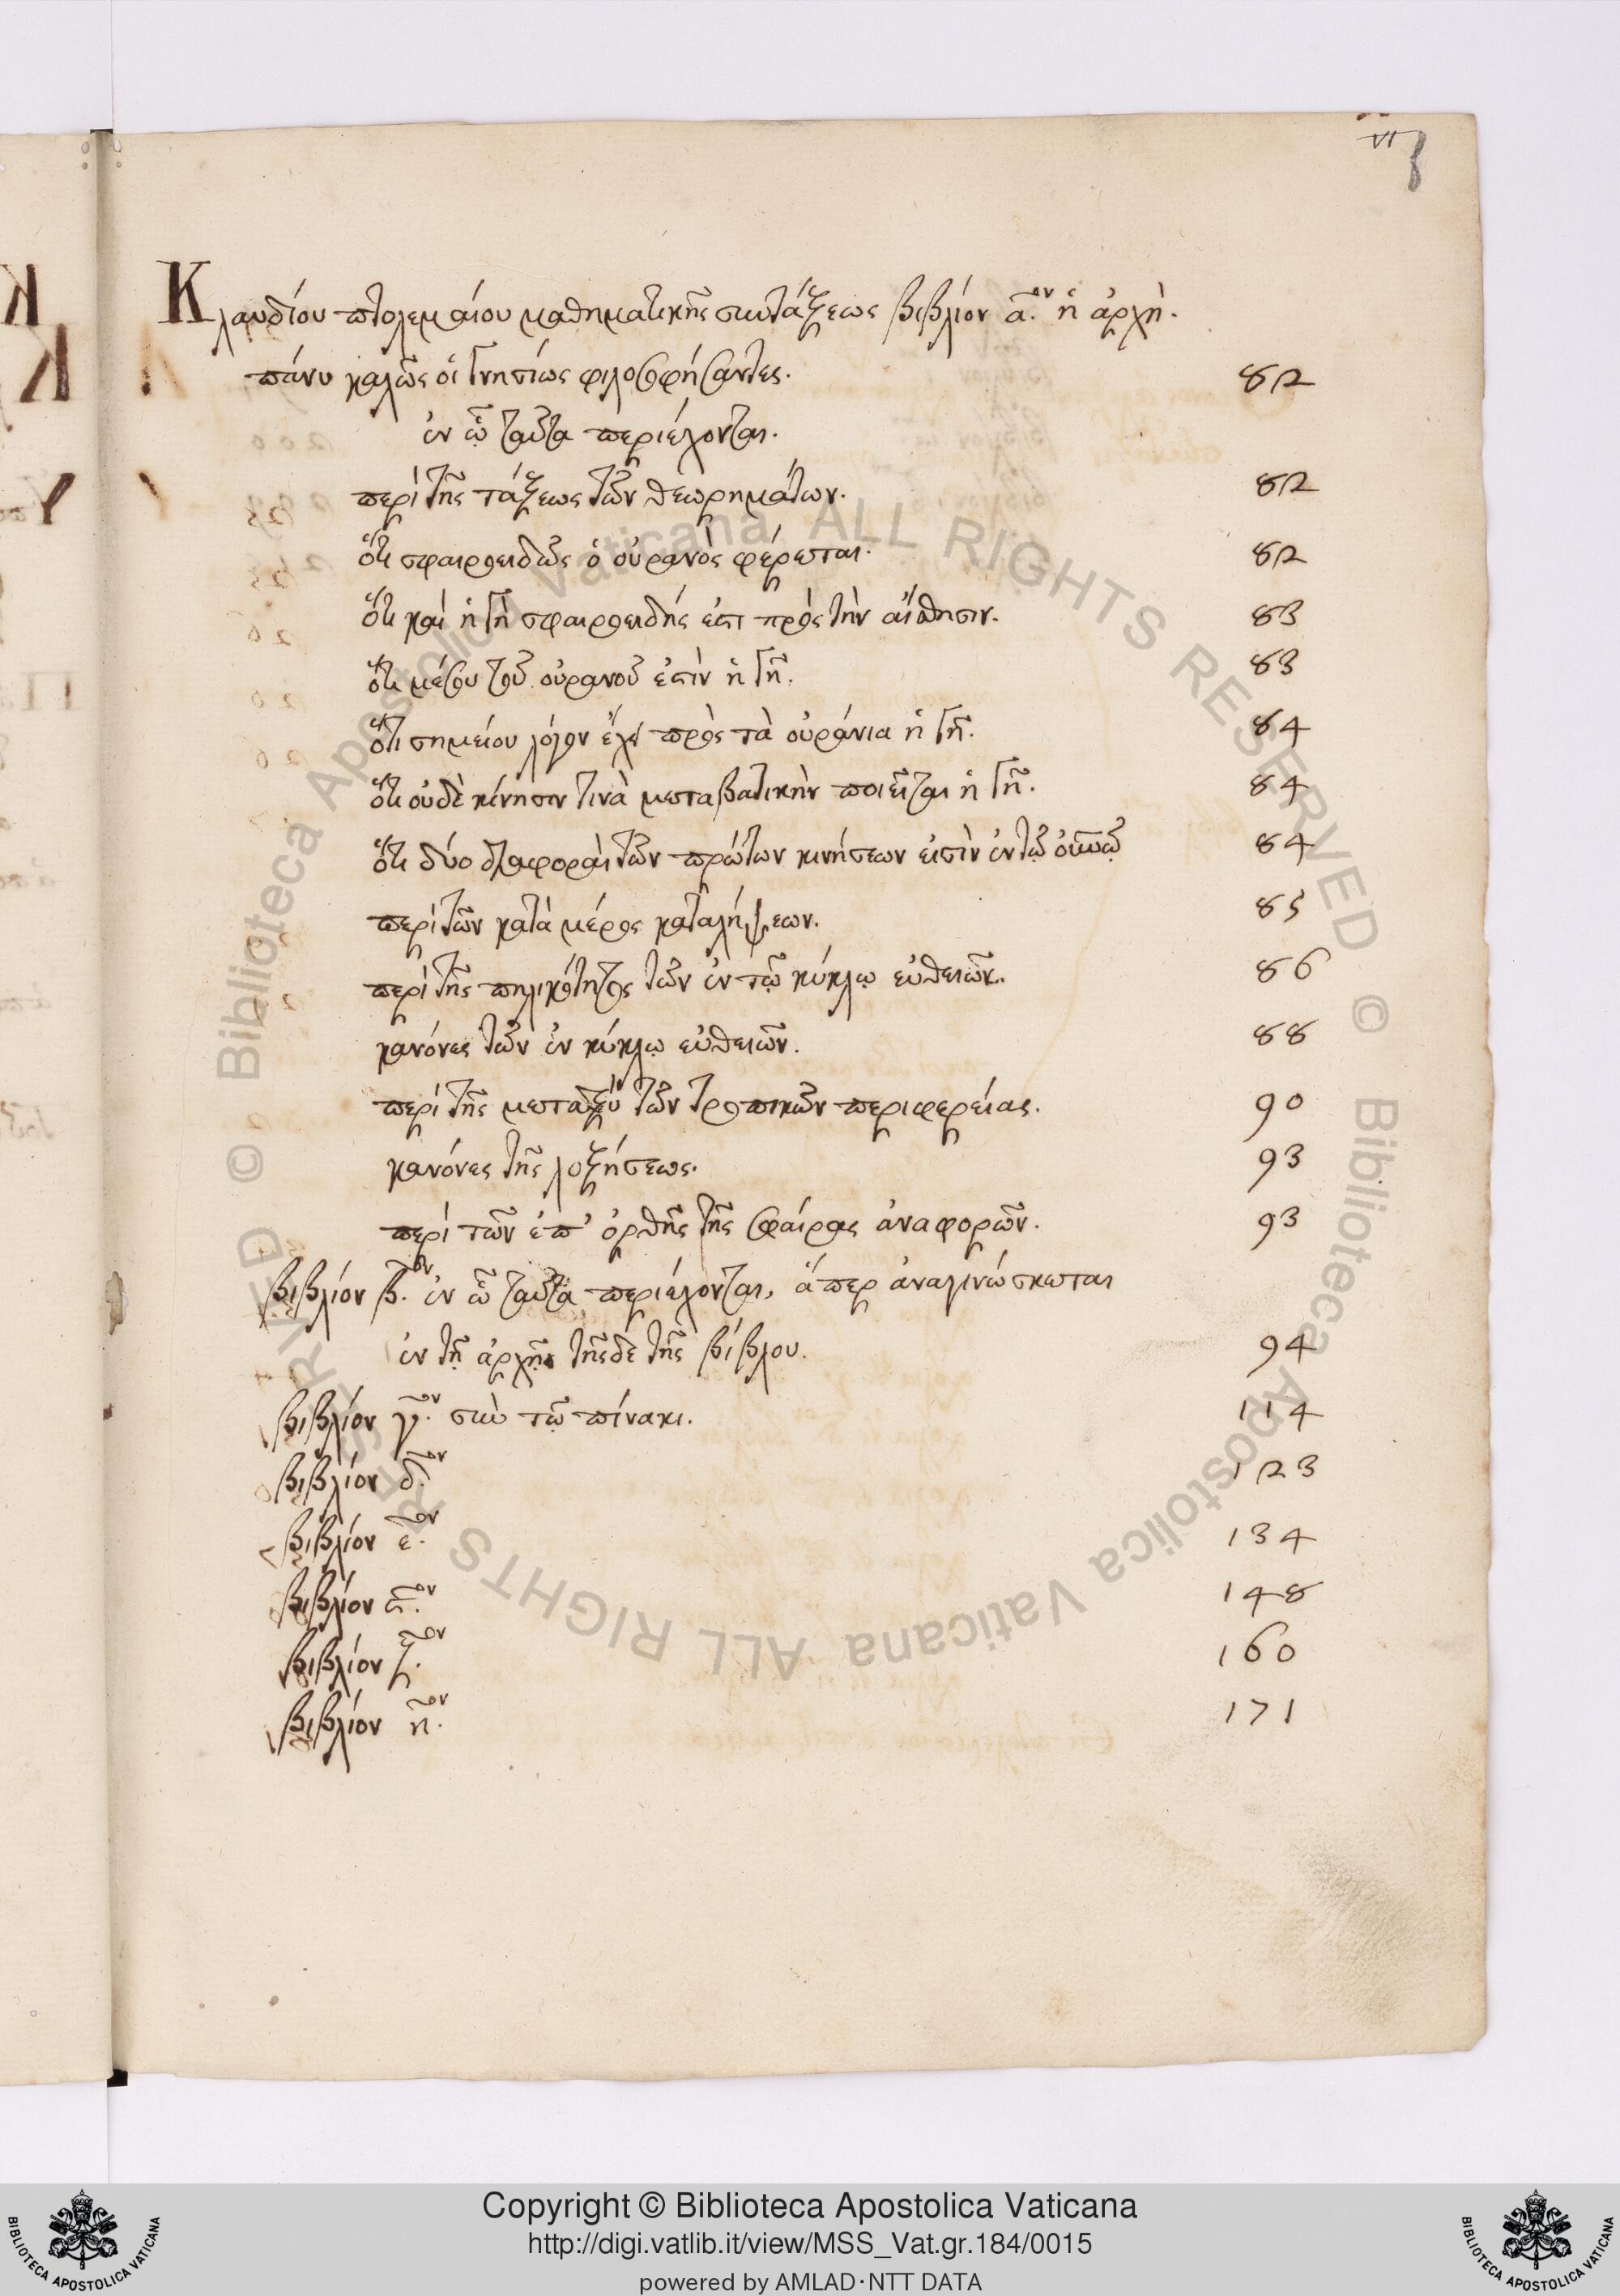 VI
Κλαυδίου πτολεμαίου μαθηματικῆς συντάξεως βιβλίον α̅ον. ἡ ἀρχή.
πάνυ καλῶς οἱ γνησίως φιλοσοφήσαντες. 82
ἐν ᾧ ταῦτα περιέχονται.
περὶ τῆς τάξεως τῶν θεωρημάτων. 82
ὅτι σφαιροειδῶς ὁ οὐρανὸς φέρεται. 82
ὅτι καὶ ἡ γῆ σφαιροειδής ἐστι πρὸς τὴν αἴσθησιν. 83
ὅτι μέσου τοῦ οὐρανοῦ ἐστὶν ἡ γῆ. 83
ὅτι σημείου λόγον ἔχει πρὸς τὰ οὐράνια ἡ γῆ. 84
ὅτι οὐδὲ κίνησιν τινὰ μεταβατικὴν ποιεῖται ἡ γῆ. 84
ὅτι δύο διαφοραὶ τῶν πρώτων κινήσεων εἰσὶν ἐν τῷ οὐνῷ 84
περὶ τῶν κατὰ μέρος καταλήψεων. 85
περὶ τῆς πηλικότητος τῶν ἐν τῷ κύκλῳ εὐθειῶν. 86
κανόνες τῶν ἐν κύκλῳ εὐθειῶν. 88
περὶ τῆς μεταξὺ τῶν τροπικῶν περιφερείας. 90
κανόνες τῆς λοξήσεως. 93
περὶ τῶν ἐπ' ὀρθῆς τῆς σφαίρας ἀναφορῶν. 93
βιβλίον β̅ον. ἐν ᾧ ταῦτα περιέχονται, ἅπερ ἀναγινώσκεται
ἐν τῇ ἀρχῇ τῆσδε τῆς βίβλου. 94
βιβλίον γ̅ον. σὺν τῷ πίνακι. 114
βιβλίον δ̅ον. 123
βιβλίον ε̅ον. 134
βιβλίον ϛ̅ον. 148
βιβλίον ζ̅ον. 160
βιβλίον η̅ον. 171
© Biblioteca Apostolica Vaticana ALL RIGHTS RESERVED © Biblioteca Apostolica Vaticana ALL RIGHTS RESERVED
BIBLIOTECA APOSTOLICA VATICANA
Copyright © Biblioteca Apostolica Vaticana
http://digi.vatlib.it/view/MSS_Vat.gr.184/0015
powered by AMLAD·NTT DATA
BIBLIOTECA APOSTOLICA VATICANA